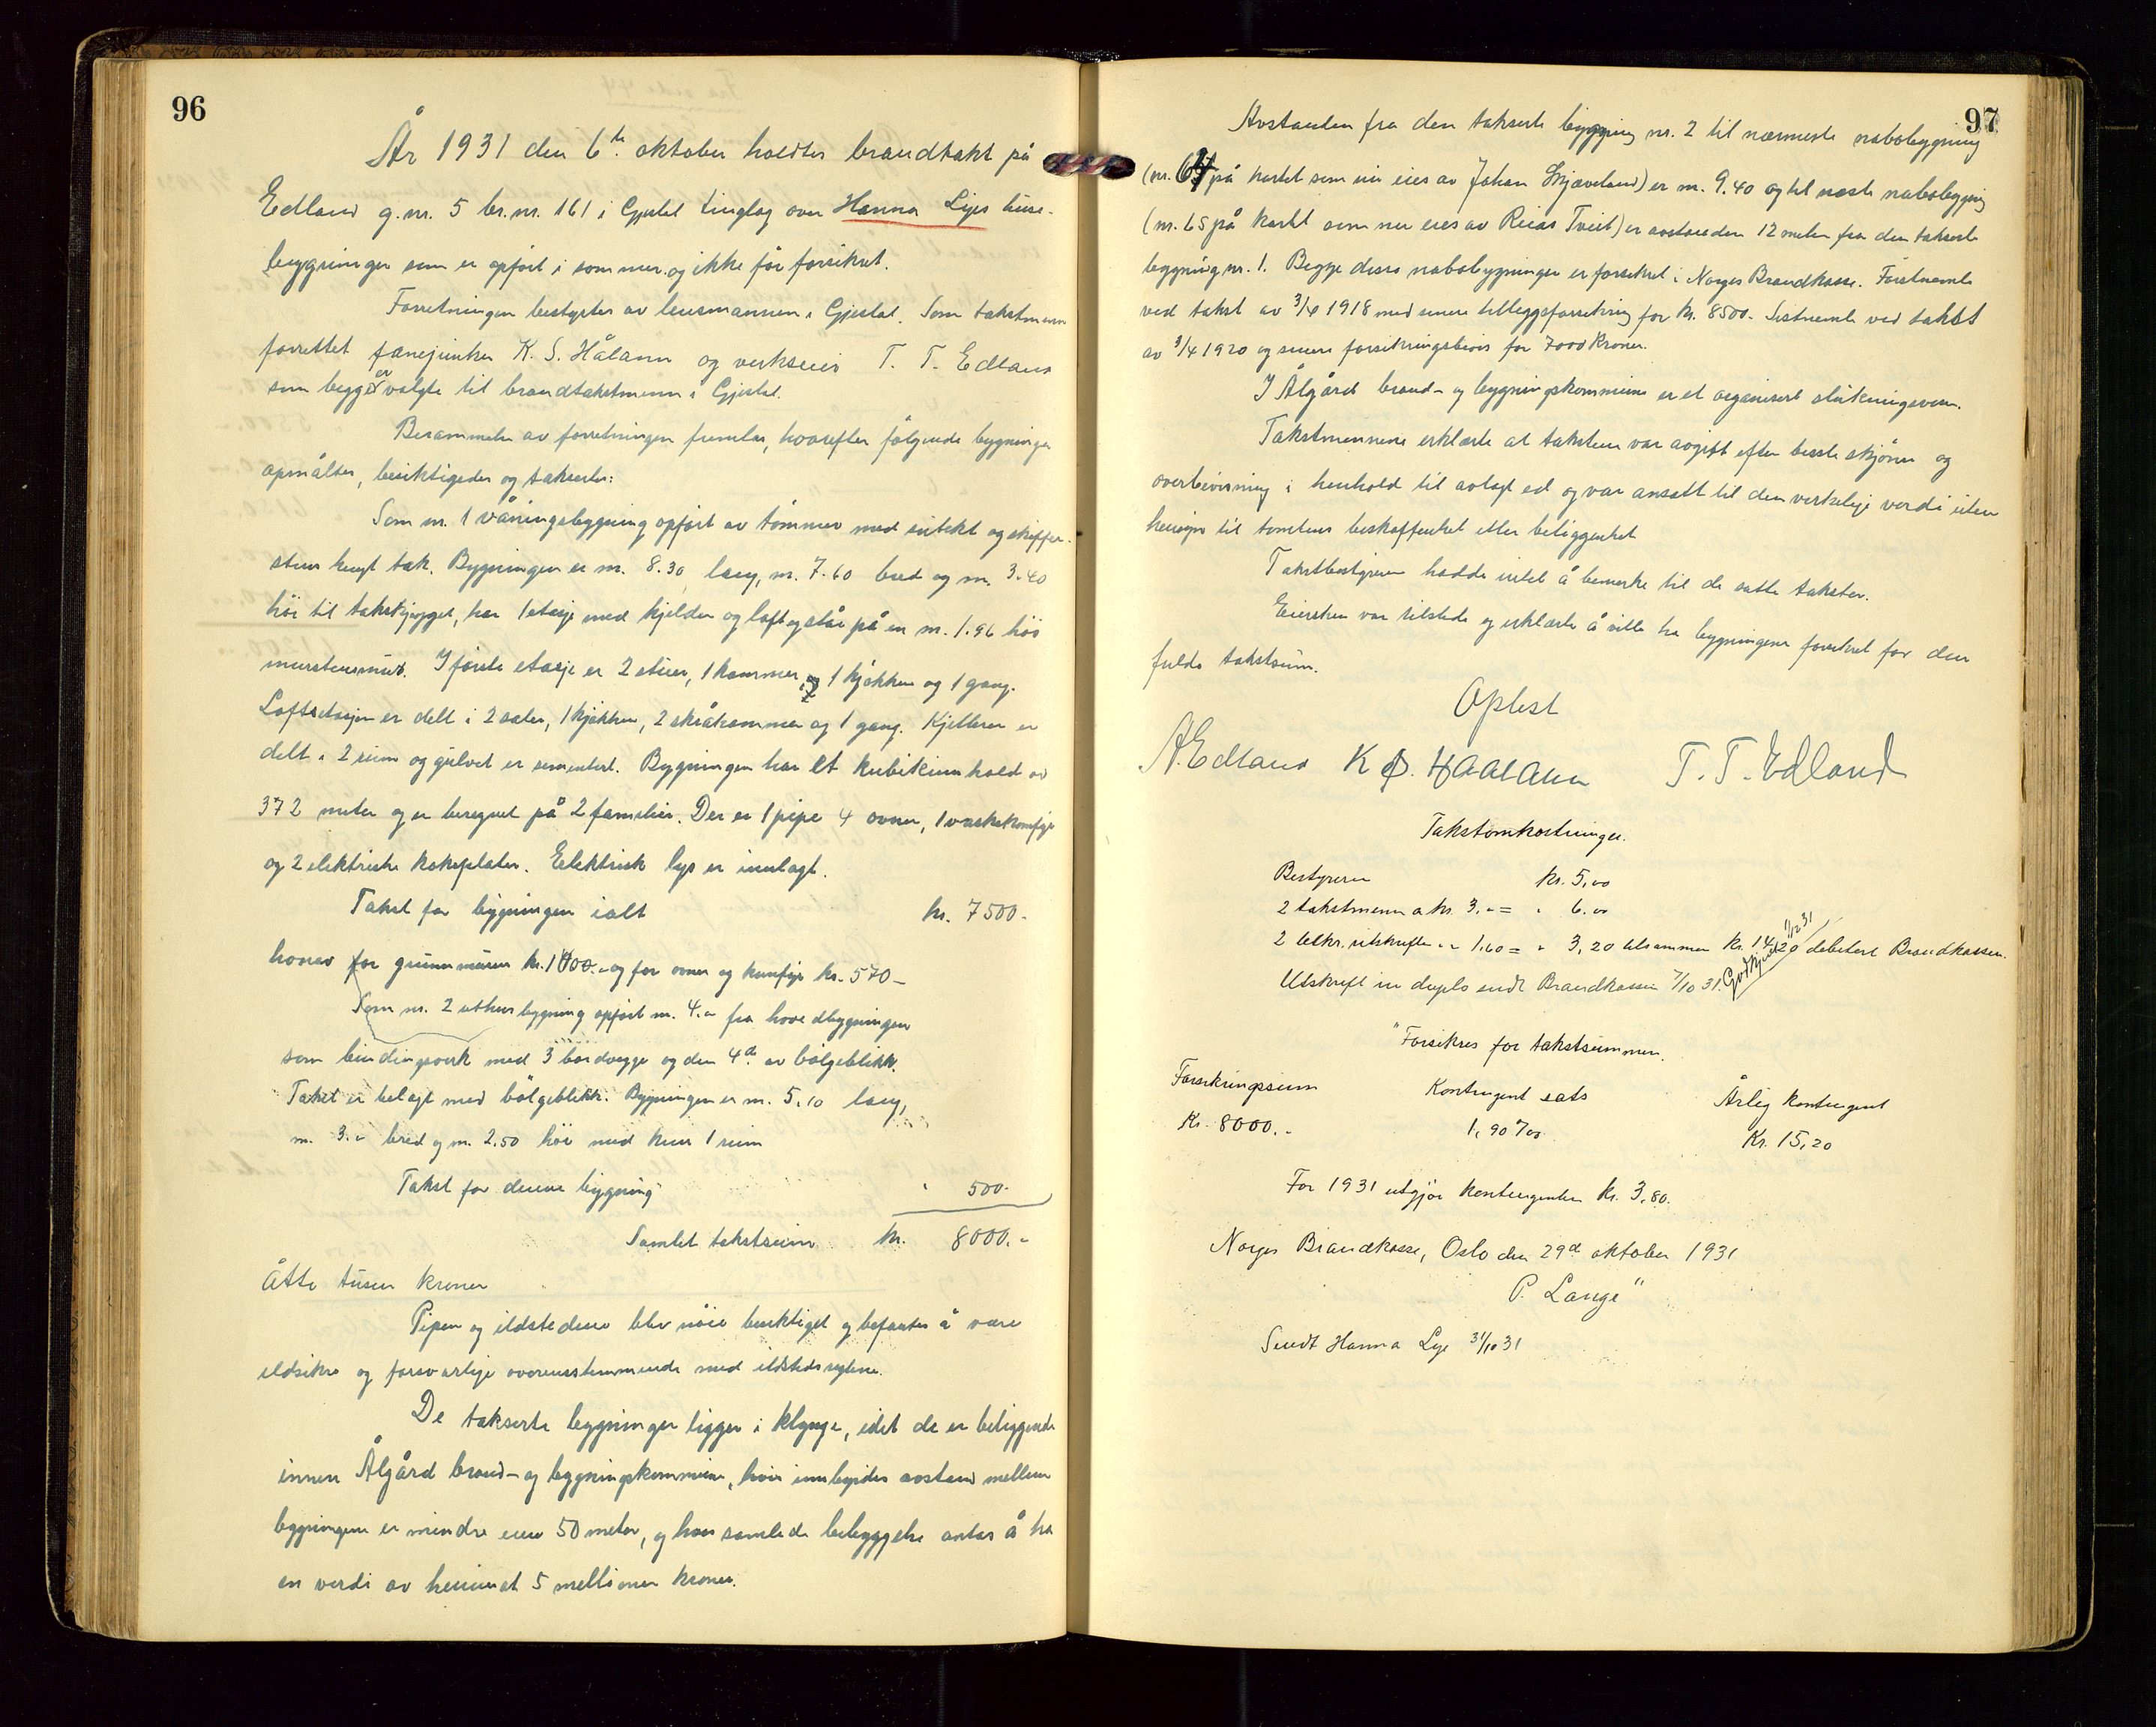 96
År 1931 den 6te oktober holdtes brandtakt på
Edland g.nr. 5 br.nr. 161 i Gjestal tinglag over Hanna Lyes huse-
bygninger som er opført i sommer og ikke før forsikret.
Forretningen bestyrtes av lensmannen i Gjestal. Som takstmenn
forrettet fanejunker K. S. Hålann og verkseier T. T. Edland
som begge er valgte til brandtakstmenn i Gjestal.
Berammelse av forretningen fremlas, hvorefter følgende bygninger
opmåltes, besiktigedes og taksertes:
Som nr. 1 våningsbygning opført av tømmer med sutekt og skiffer-
stens hengt tak. Bygningen er m. 8.30 lang, m. 7.60 bred og m. 3.40
høi til takskjegget, har 1 etasje med kjelder og loft og står på en m. 1.96 høi
murstensmur. I første etasje er 2 stuer, 1 kammer, 1 kjøkken og 1 gang.
Loftsetasjen er delt i 2 saler, 1 kjøkken, 2 skråkammer og 1 gang. Kjelleren er
delt i 2 rum og gulvet er sementert. Bygningen har et kubikinnhold av
372 meter og er beregnet på 2 familier. Der er 1 pipe 4 ovner, 1 vaskekomfyr
og 2 elektriske kokeplater. Elektrisk lys er innlagt.
Takst for bygningen ialt kr. 7500.-
hvorav for grunnmuren kr. 1000.- og for ovner og komfyr kr. 570.-
Som nr. 2 uthusbygning opført m. 4.- fra hovedbygningen
som bindingsverk med 3 bordvegge og den 4de av bølgeblikk.
Taket er belagt med bølgeblikk. Bygningen er m. 5.10 lang,
m. 3.- bred og m. 2.50 høi med kun 1 rum
Takst for denne bygning " 500.-
Samlet takstsum kr. 8000.-
Åtte tusen kroner
Pipen og ildstedene blev nøie besiktiget og befantes å være
ildsikre og forsvarlige overensstemmende med ildstedsreglene.
De takserte bygninger ligger i klynge, idet de er beliggende
innen Ålgård brand- og bygningskommune, hvis innbyrdes avstand mellem
bygningene er mindre enn 50 meter, og hvis samlede bebyggelse antas å ha
en verdi av henimot 5 millioner kroner.
97
Avstanden fra den takserte bygning nr. 2 til nærmeste nabobygning
(nr. 64 på kartet som nu eies av Johan Skjæveland) er m. 9.40 og til næste nabobygning
(nr. 65 på kartet som nu eies av Reias Tveit) er avstanden 12 meter fra den takserte
bygning nr. 1. Begge disse nabobygninger er forsikret i Norges Brandkasse. Førstnevnte
ved takst av 3/4 1918 med senere tilleggsforsikring for kr. 8500.- Sistnevnte ved takst
av 3/4 1920 og senere forsikringsbevis for 7000 kroner.
I Ålgård brand- og bygningskommune er et organisert slukningsvesen.
Takstmennene erklærte at taksten var avgitt efter beste skjønn og
overbevisning i henhold til avlagt ed og var ansatt til den virkelige verdi uten
hensyn til tomtens beskaffenhet eller beliggenhet
Takstbestyreren hadde intet å bemerke til de satte takster.
Eiersken var tilstede og erklærte å ville ha bygningene forsikret for den
fulde takstsum.
Oplest
A. Edland K S. Haalann T. T. Edland
Takstomkostninger.
Bestyreren kr. 5,00
2 takstmenn a kr. 3.- = " 6.00
2 bekr. utskrifter " - 1,60 = " 3,20 tilsammen kr. 14,20 debitert Brandkassen.
Godkjent 1/12 31
Utskrift in duplo sendt Brandkassen 7/10 31.
"Forsikres for takstsummen.
Forsikringssum Kontingent sats Årlig kontingent
Kr. 8000.- 1,90 ‰ Kr. 15,20
For 1931 utgjør kontingenten kr. 3,80.
Norges Brandkasse, Oslo den 29de oktober 1931
P. Lange"
Sendt Hanna Lye 31/10 31